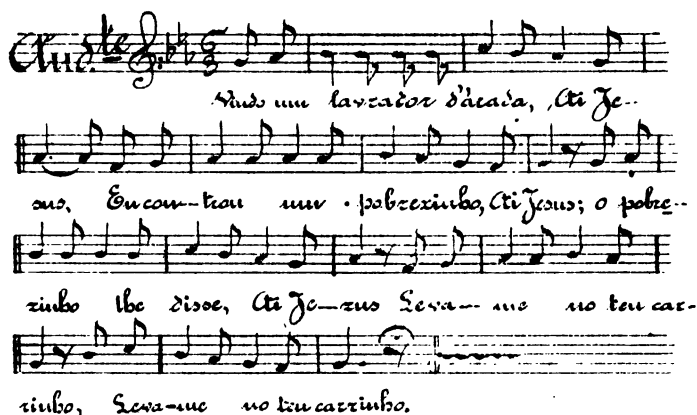 And.te
Vindo um lavrador d'arada, Ai Je--
sus, Encon-trou um pobrezinho, Ai Jesus; o pobre--
zinho lhe disse, Ai Je-zus Leva-- me no teu car-
rinho, Leva-me no teu carrinho.